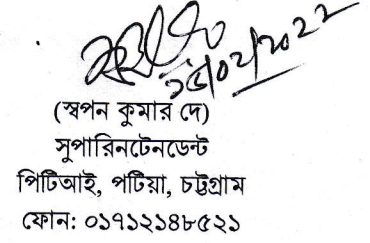 ২৫/০২/২০২২
(স্বপন কুমার দে)
সুপারিনটেনডেন্ট
পিটিআই, পটিয়া, চট্টগ্রাম
ফোন: ০১৭১২১৪৮৫২১